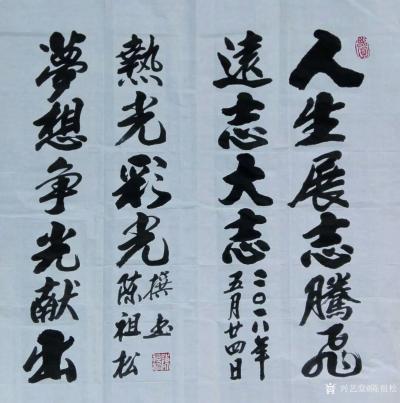 人生展志騰飛
遠志大志
二〇一八年
五月廿四日
熱光彩光
撰书
陈祖松
夢想争光献出
兴艺堂@陈祖松